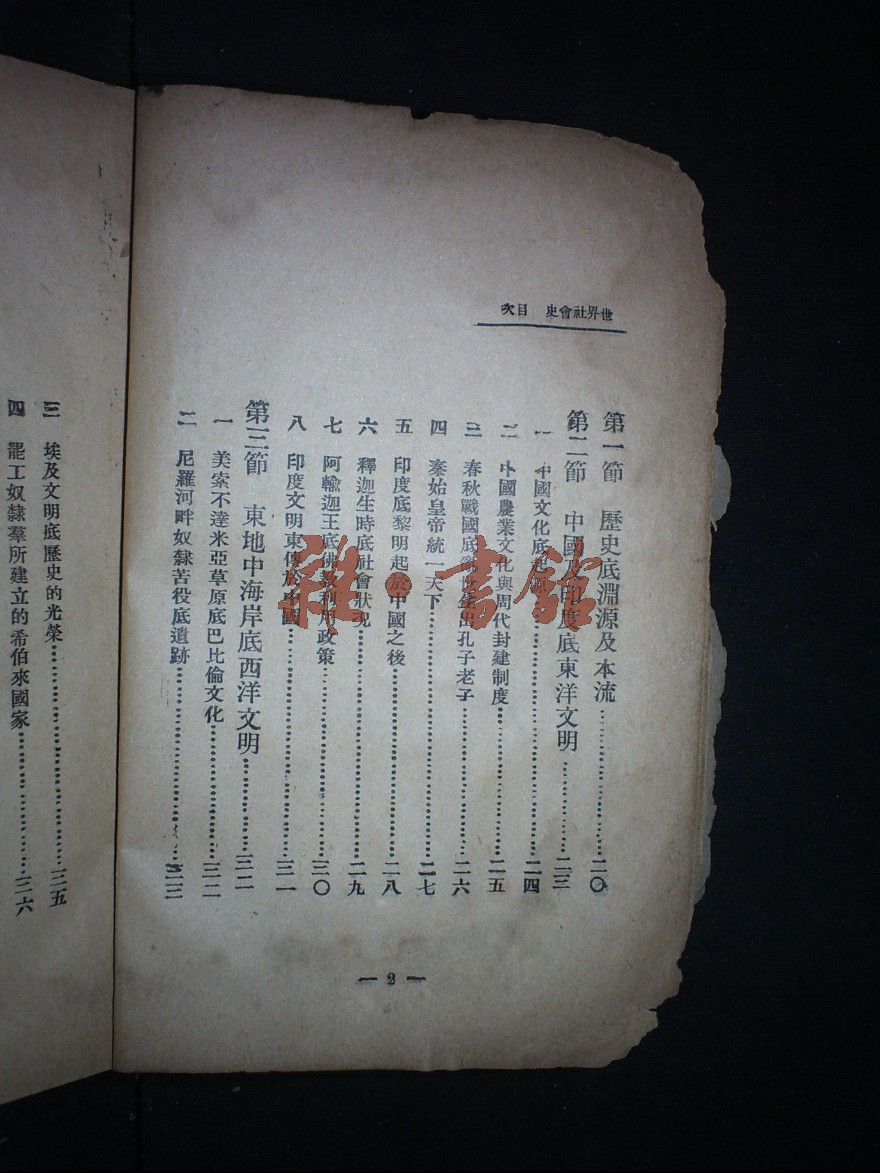 世界社會史　目次
第一節　歷史底淵源及本流…………二〇
第二節　中國及印度底東洋文明…………二三
一　中國文化底起源…………二四
二　中國農業文化與周代封建制度…………二五
三　春秋戰國底亂世生出孔子老子…………二六
四　秦始皇帝統一天下…………二七
五　印度底黎明起於中國之後…………二八
六　釋迦生時底社會狀況…………二九
七　阿輸迦王底佛教利用政策…………三〇
八　印度文明東傳於中國…………三一
第三節　東地中海岸底西洋文明…………三二
一　美索不達米亞草原底巴比倫文化…………三二
二　尼羅河畔奴隸苦役底遺跡…………三三
— 2 —
三　埃及文明底歷史的光榮…………三五
四　罷工奴隸羣所建立的希伯來國家…………三六
雜·書館